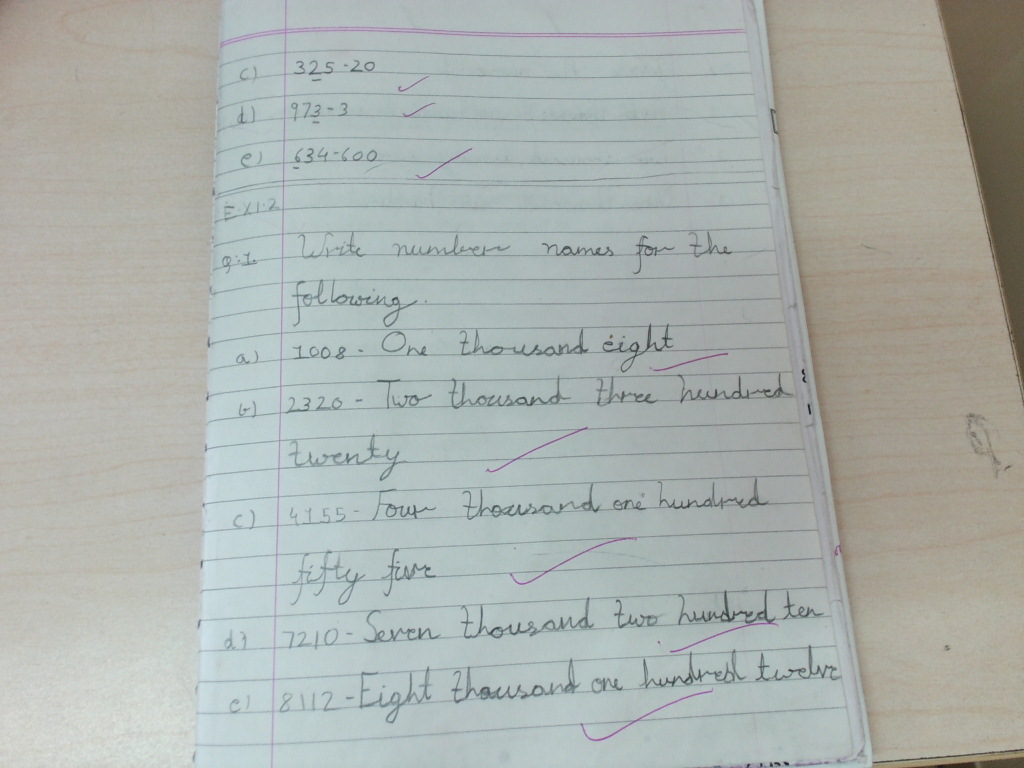 c) 325-20
d) 973-3
e) 634-600
Ex1.2
Q.1. Write number names for the
following.
a) 1008 - One thousand eight
b) 2320 - Two thousand three hundred
twenty
c) 4155 - Four thousand one hundred
fifty five
d) 7210 - Seven thousand two hundred ten
e) 8112 - Eight thousand one hundred twelve